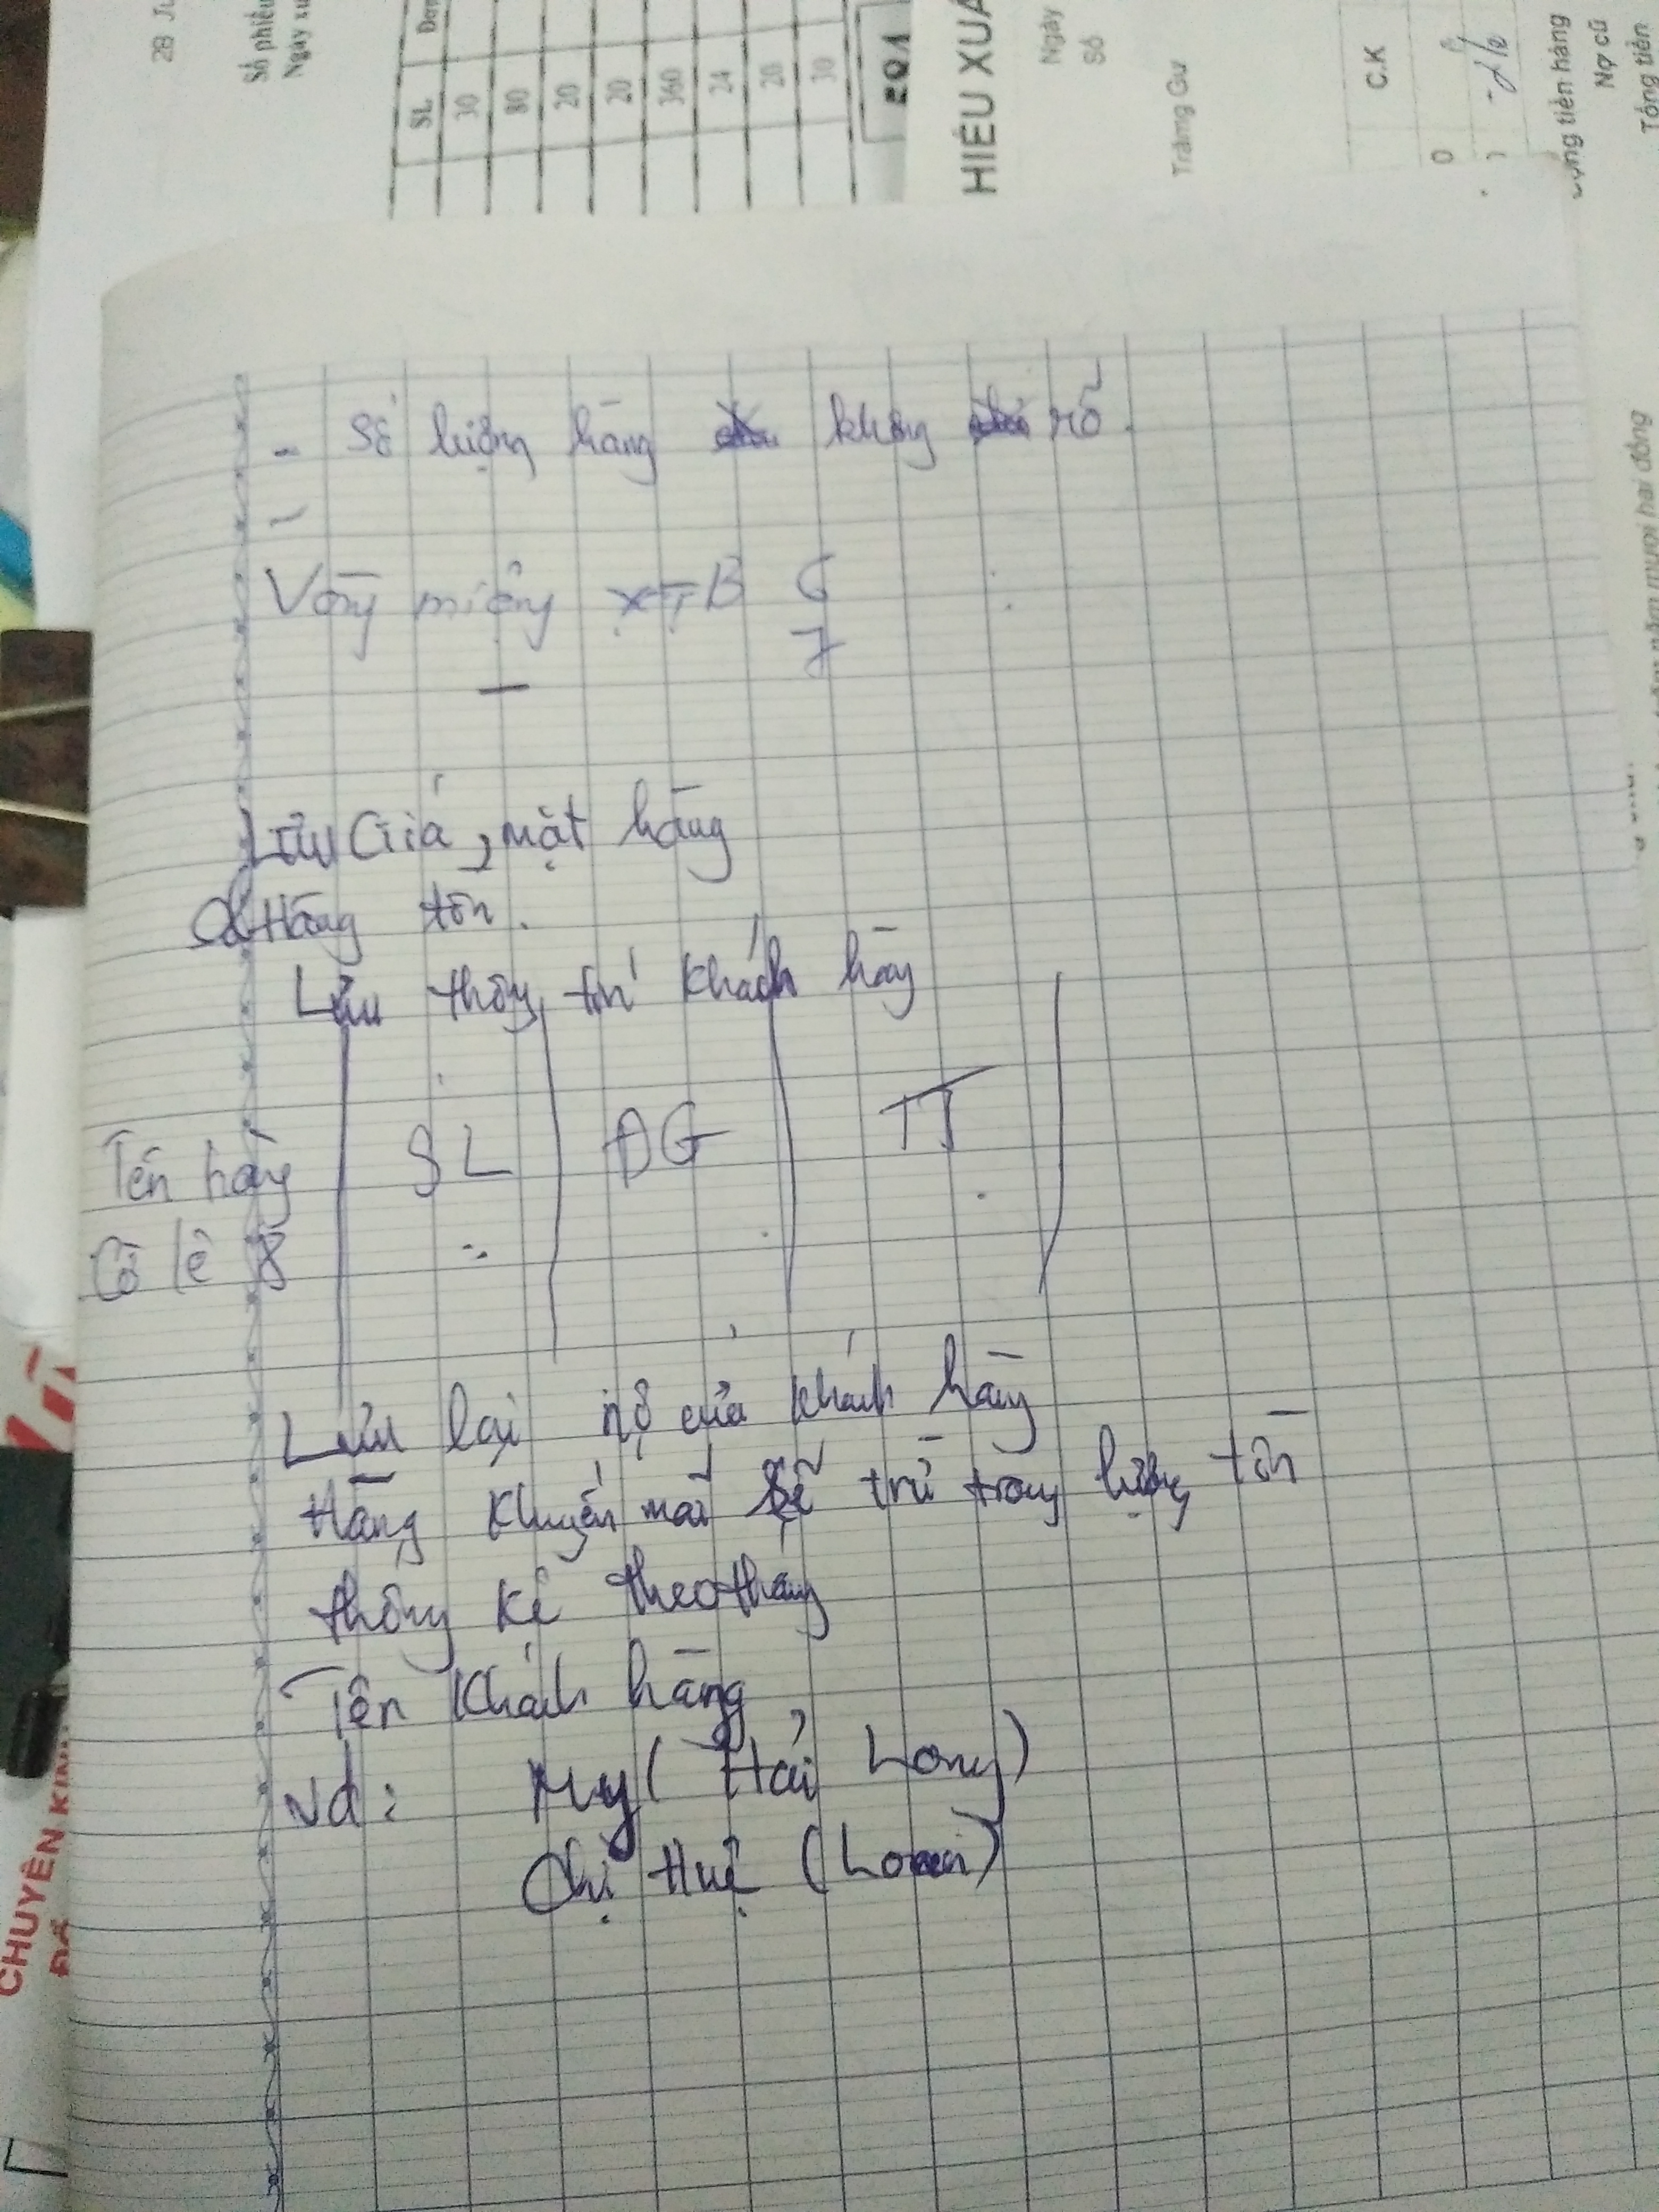 28
Số phiếu
Ngày
SL
30
80
20
20
360
24
20
30
HIẾU XUẤ
Ngày
Số
C.K
0
tiền hàng
Nợ cũ
Tổng tiền
mươi hai đồng
- Số lượng hàng không rõ.
Vòng miệng XTB 6
7
Lưu Giá, mặt hàng
Hàng tồn.
Lưu thông tin khách hàng
Tên hàng SL ĐG TT
Cờ lê 8
Lưu lại nợ của khách hàng
Hàng khuyến mãi sẽ trừ trong lượng tồn
thống kê theo tháng
Tên khách hàng
vd: My (Hải Long)
Chị Huệ (Loan)
CHUYÊN KINH